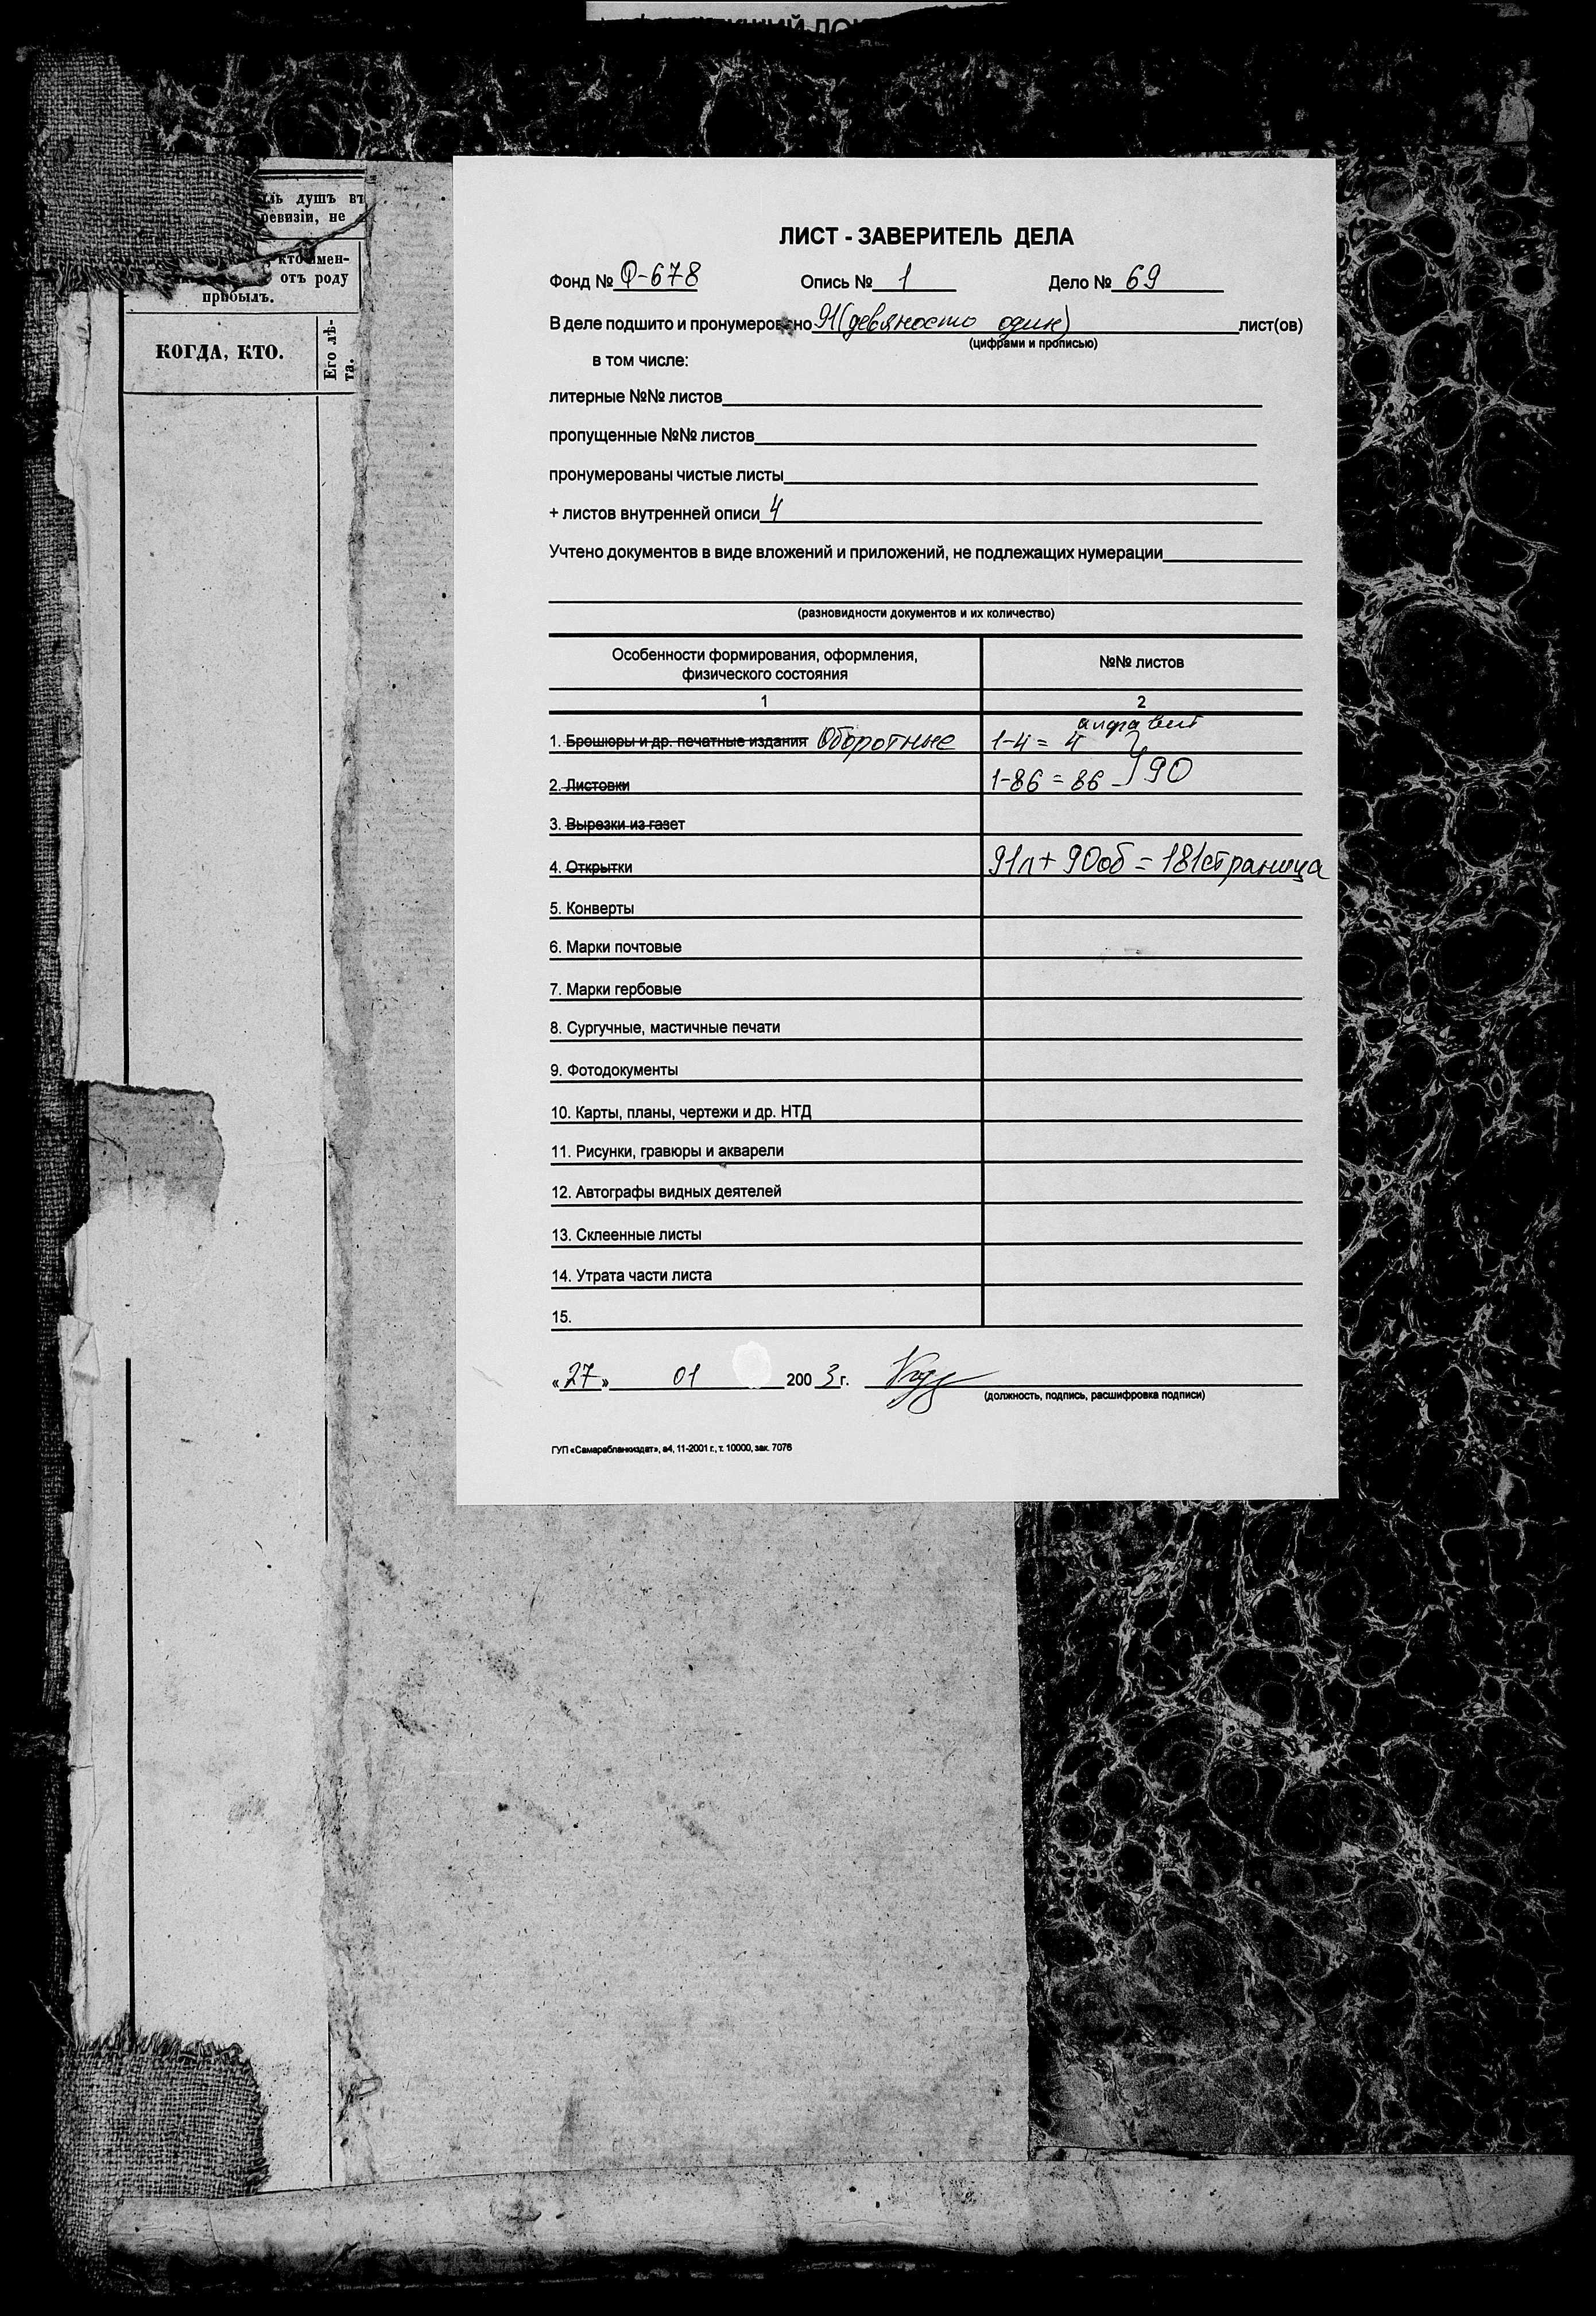 ль душъ въ
ревизіи, не
кто имен-
отъ роду
прибылъ.
КОГДА, КТО.
Его лѣ-
та.
ЛИСТ - ЗАВЕРИТЕЛЬ ДЕЛА
Фонд № Ф-678 Опись № 1 Дело № 69
В деле подшито и пронумеровано 91 (девяносто один) лист(ов)
(цифрами и прописью)
в том числе:
литерные №№ листов
пропущенные №№ листов
пронумерованы чистые листы
+ листов внутренней описи 4
Учтено документов в виде вложений и приложений, не подлежащих нумерации
(разновидности документов и их количество)
Особенности формирования, оформления, №№ листов
физического состояния
1 2
алфавит
1. Брошюры и др. печатные издания Оборотные 1-4 = 4
2. Листовки 1-86 = 86 } 90
3. Вырезки из газет
4. Открытки 91л + 90об = 181страница
5. Конверты
6. Марки почтовые
7. Марки гербовые
8. Сургучные, мастичные печати
9. Фотодокументы
10. Карты, планы, чертежи и др. НТД
11. Рисунки, гравюры и акварели
12. Автографы видных деятелей
13. Склеенные листы
14. Утрата части листа
15.
«27» 01 2003 г.
(должность, подпись, расшифровка подписи)
ГУП «Самарабланкиздат», а4, 11-2001 г., т. 10000, зак. 7076